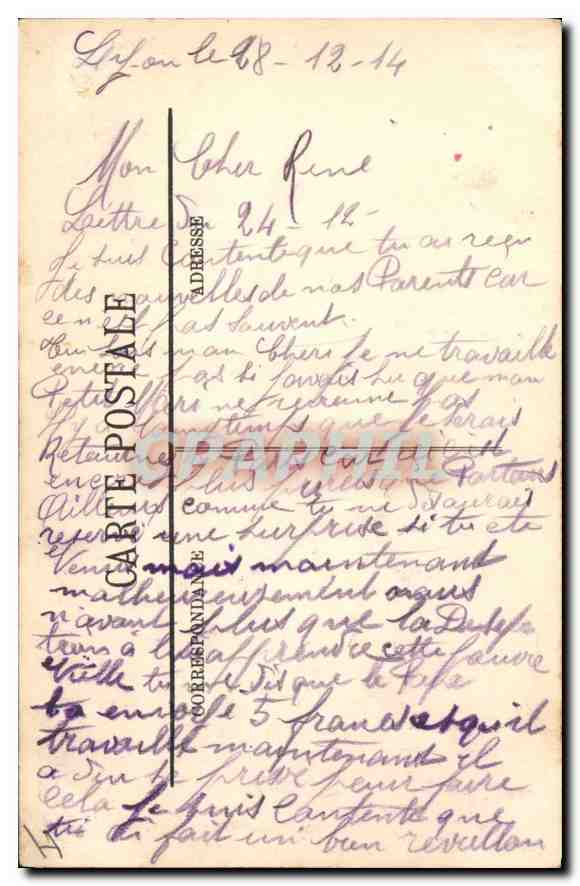 Lyon le 28-12-14
Mon Cher René
Lettre du 24-12-
Je suis contente que tu as reçu
des nouvelles de nos Parents car
ce n'est pas souvent.
mon Cheri Je ne travaille
pas si javais su que mon
Petit ne pas
Il y a longtemps que je serais
Retourné
encore plus que Partout
Ailleurs comme tu me dis aurais
reservé une surprise si tu ete
Venu mais maintenant
malheureusement nous
n'avons plus que la
à lui apprendre cette pauvre
Vieille tu me dis que le Papa
ta envoyé 5 francs et qu'il
travaille maintenant il
a du se privé pour faire
cela Je suis contente que
tu ai fait un bon reveillon
CARTE POSTALE
CORRESPONDANCE
ADRESSE
CPAPHIL